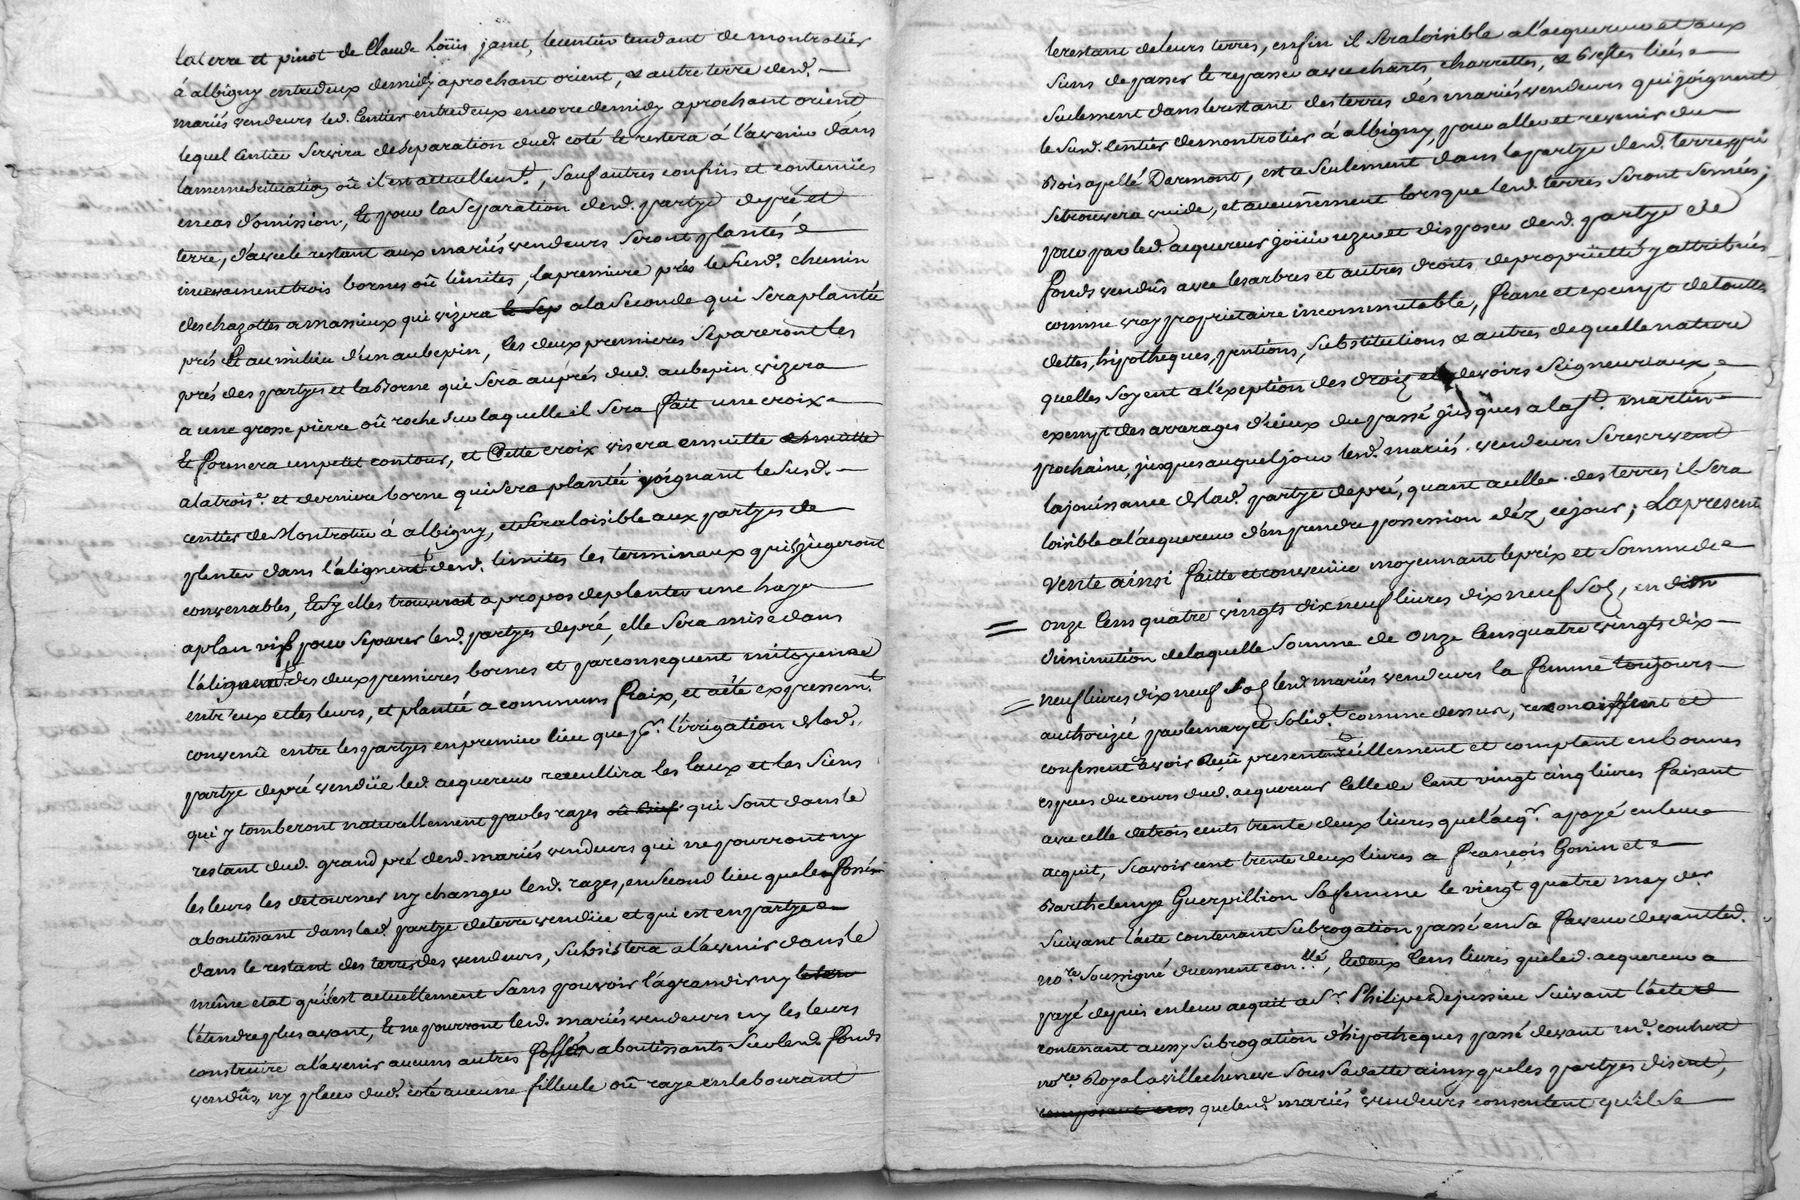 la terre et pinot de Claude Loüis janet, le centier tendant de montrotier
à albigny entredeux demidy aprochant orient, & autre terre desd.
mariés vendeurs led. Centier entredeux encorre demidy aprochant orient
lequel Centier servira de separation dud. coté Et restera à l'avenir dans
la meme situation oû il est actuellemt., sauf autres confins et contenuës
en cas d'omission, Et pour la Separation desd. partye de pré et
terre, d'avec le restant aux mariés vendeurs seront plantés
incessament trois bornes oû limites, la premiere prés le susd. chemin
des chazottes a massieux qui vizera le sep a la seconde qui sera plantée
prés Et au milieu d'un aubepin, les deux premieres separeront les
prés des partyes et la Borne qui sera auprés dud. aubepin vizera
a une grosse pierre oû roche sur laquelle il sera fait une croix
Et formera un petit contour, et Cette croix visera ensuitte ensuitte
a la trois.e et derniere borne qui sera plantée joignant le susd.
centier de Montrotier à albigny, et sera loisible aux partyes de
planter dans l'alignemt desd. limites les terminaux qu'ils jugeront
convenables, Et sy elles trouvent a propos de planter une haye
a plan vif pour separer lesd. partyes de pré, elle sera mise dans
l'alignemt des deux premieres bornes et par consequent mitoyenne
entr'eux et les leurs, et plantée a communs fraix, et a été expressemt.
convenû entre les partyes en premier lieu que pr. l'irrigation de lad.
partye de pré venduë led. acquereur recueillira les Eaux et les siens
qui y tomberont naturellement par les razes oû biefs qui sont dans le
restant dud. grand pré desd. mariés vendeurs qui ne pourront ny
les leurs les detourner ny changer lesd. razes, en second lieu que le fossé
aboutissant dans lad. partye de terre venduë et qui est en partye
dans le restant des terres des vendeurs, subsistera a l'avenir dans le
même etat qu'il est actuellement sans pouvoir l'agrandir ny
l'etendre plus avant, Et ne pourront lesd. mariés vendeurs ny les leurs
construire a l'avenir aucuns autres fossés aboutissants sur lesd. fonds
vendûs, ny placer dud. coté aucune filleule oû raze en labourant
le restant de leurs terres, enfin il sera loisible a l'acquereur et aux
siens de passer et repasser avec chars charrettes, & bestes liées
seulement dans le restant des terres des mariés vendeurs qui joignent
le susd. centier de montrotier à albigny, pour aller et revenir du
Bois apellé Darmont, est ce seulement dans la partye desd. terres qui
se trouvera vuide, et aucunement lorsque lesd. terres seront semées,
pour par led. acquereur joüir uzer et disposer desd. partye de
fonds vendûs avec les arbres et autres droits de proprieté y attribués
comme vray proprietaire incommutable, franc et exempt de touttes
dettes, hipotheques, pentions, substitutions & autres de quelle nature
quelles soyent a l'exeption des droiz et devoirs seigneuriaux,
exempt des arrerages d'iceux du passé jusques a la st. martin
prochaine, jusques auquel jour lesd. mariés vendeurs se reservent
la joüissance de lad. partye de pré, quant a celle des terres il sera
loisible a l'acquereur d'en prendre possession déz ce jour; La present
vente ainsi faitte et convenuë moyennant le prix et somme de
onze Cens quatre vingts dix neuf livres dix neuf sols, en
diminution de laquelle somme de onze Cens quatre vingts dix
neuf livres dix neuf sols lesd. mariés vendeurs la femme toujours
authorizée par le mary et solidt. comme dessus, reconoissent et
confessent avoir reçû presentemt reéllement et comptant en bonnes
espesces du cours dud. acquereur Celle de Cent vingt cinq livres faisant
avec celle de trois cents trente deux livres que l'acqr. a payé en leur
acquit, sçavoir cent trente deux livres a François Gonin et a
Barthelemye Guerpillion sa femme le vingt quatre may der.
suivant l'acte contenant subrogation passé en sa faveur devant led.
nore. soussigné duement conllé, Et deux Cens livres que led. acquereur a
payé depuis en leur acquit a Sr. Philipe Dejussieu suivant l'acte
contenant aussy subrogation d'hipotheques passé devant me. couhert
nore. Royal a villechenve sous sa datte ainsy que les partyes disent,
que lesd. mariés vendeurs consentent qu'il se